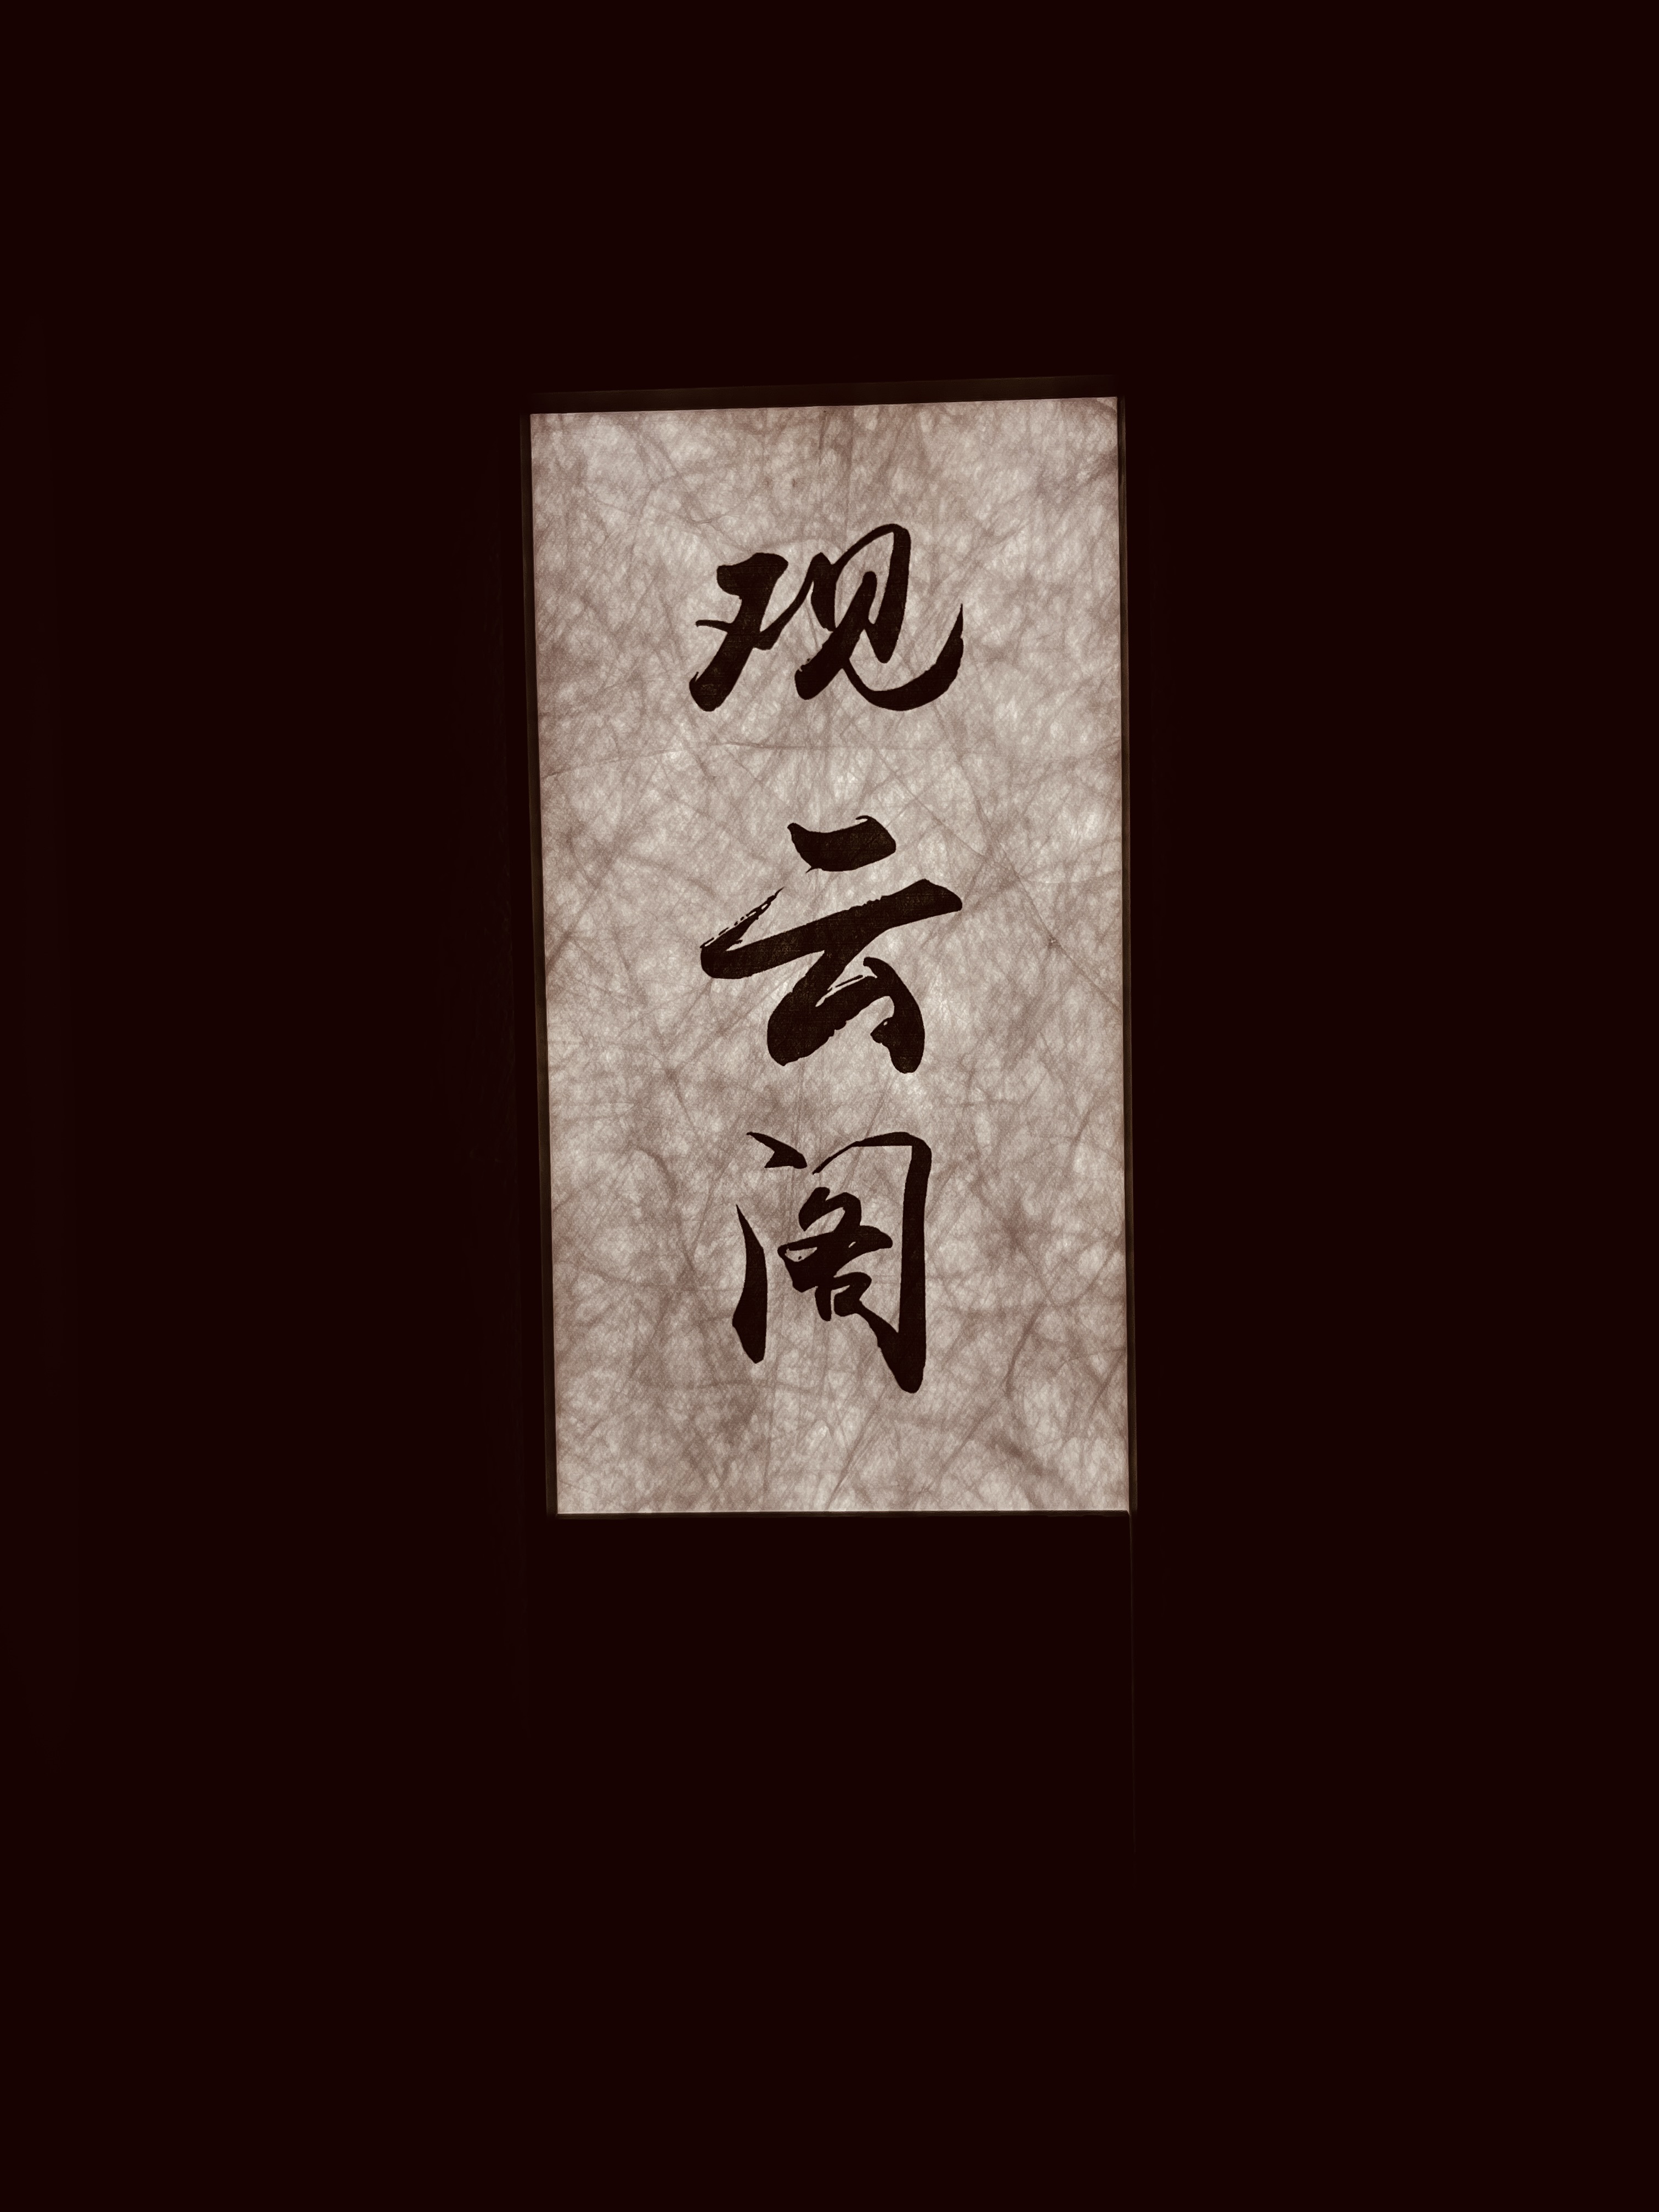 现云阁